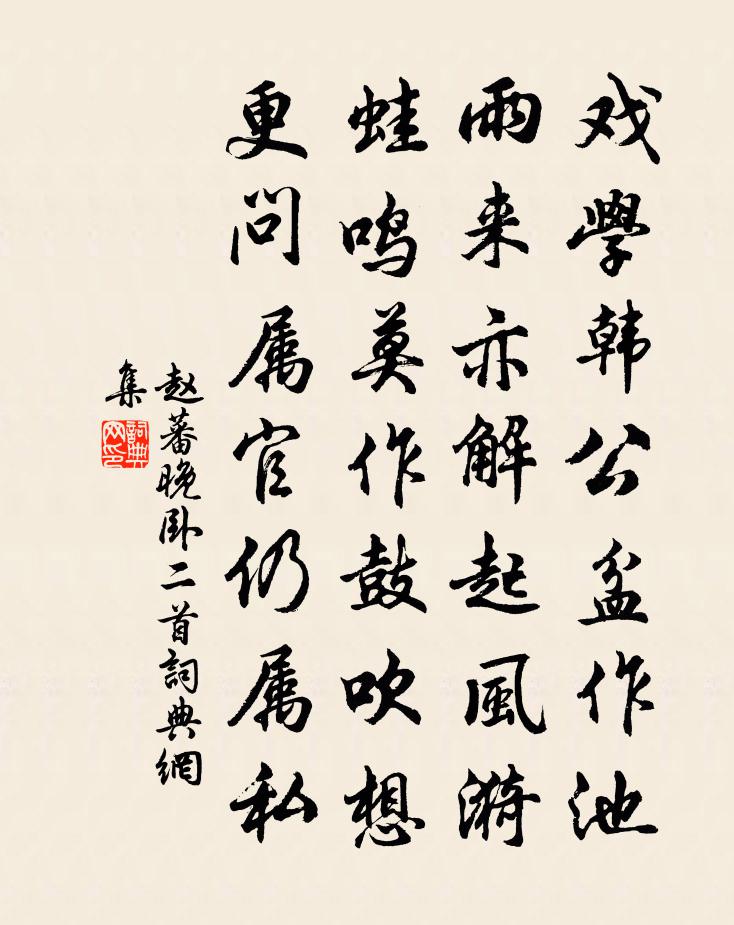 戏學韩公盆作池
雨来亦解起風漪
蛙鸣莫作鼓吹想
更问属官仍属私
赵蕃晚卧二首詞典網
集
詞典网印